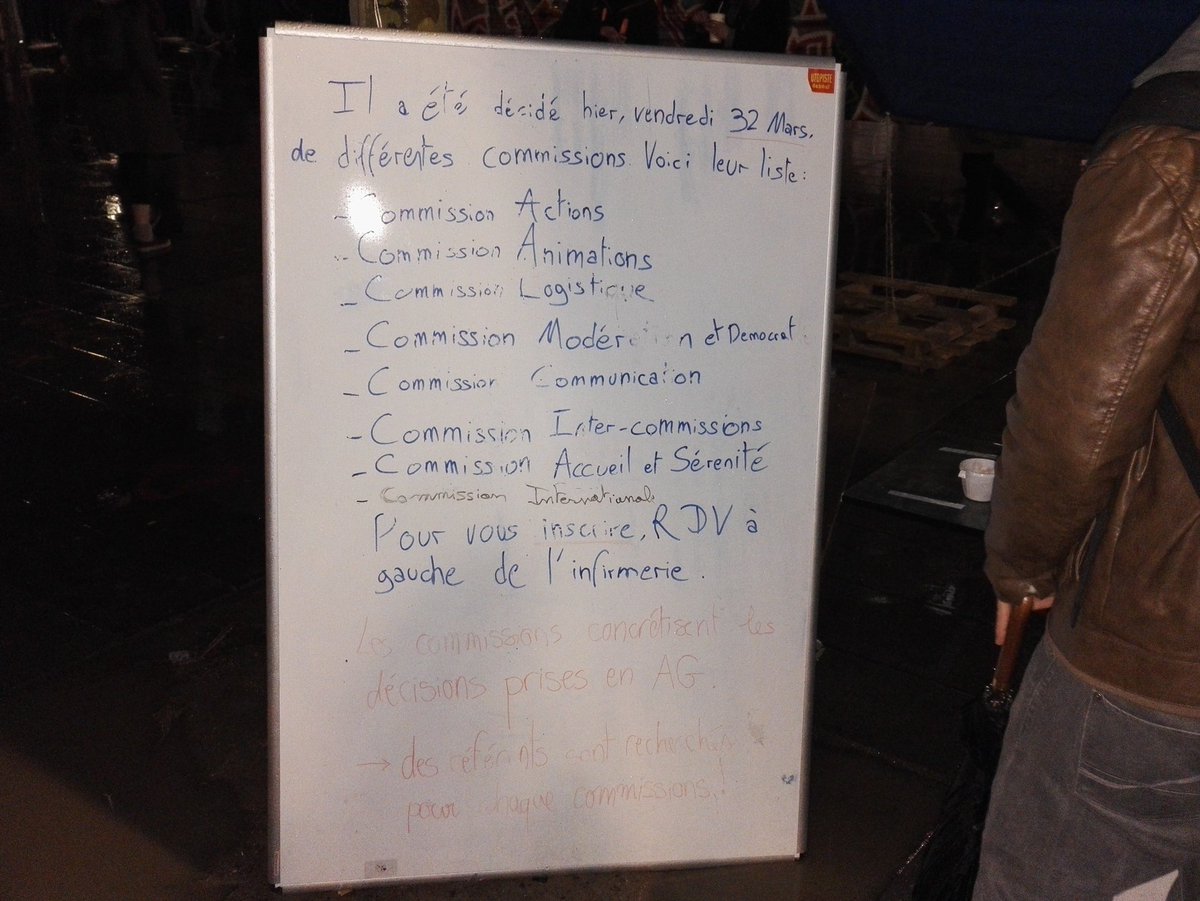 Il a été décidé hier, vendredi 32 Mars,
de différentes commissions. Voici leur liste:
- Commission Actions
- Commission Animations
- Commission Logistique
- Commission Modération et Democrat.
- Commission Communication
- Commission Inter-commissions
- Commission Accueil et Sérénité
- Commission Internationale
Pour vous inscrire, RDV à
gauche de l'infirmerie.
Les commissions concrétisent les
décisions prises en AG.
→ des référents sont recherchés
pour chaque commissions!
UTOPISTE